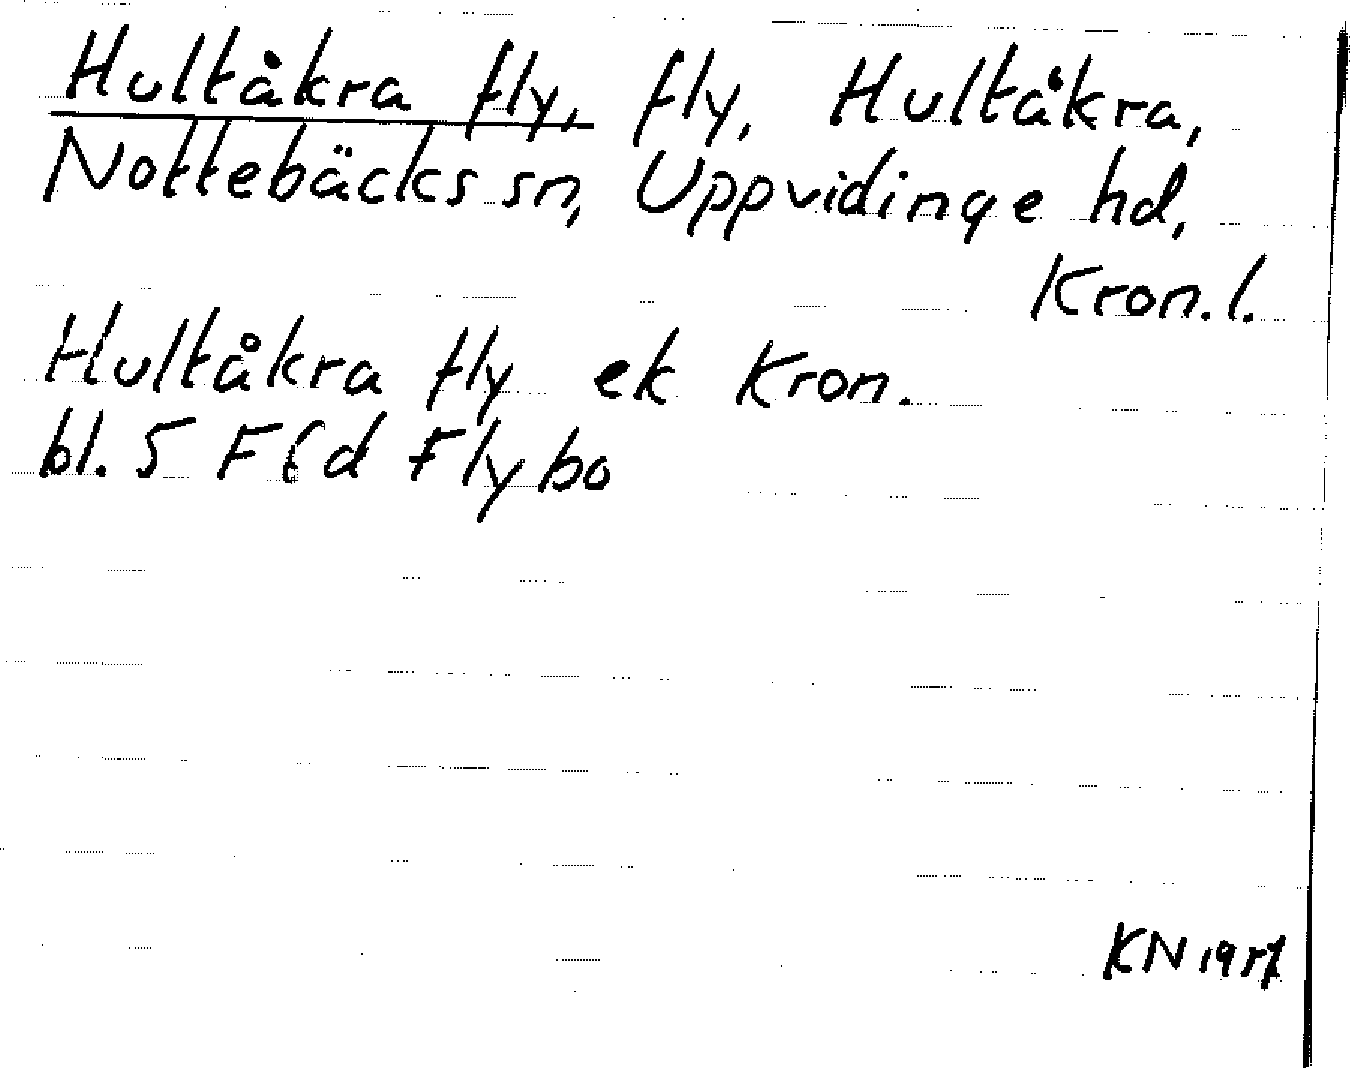 Hultåkra fly, fly, Hultåkra,
Nottebäcks sn, Uppvidinge hd,
Kron. l.
Hultåkra fly ek Kron.
bl. 5 F f d Flybo
KN 1957